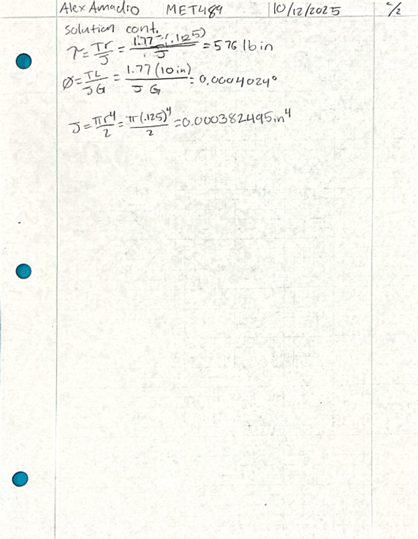 Alex Amadio MET489 10/12/2025 2/2
Solution cont.
τ = Tr/J = 1.77 (.125)/J = 576 lb in
Ø = TL/JG = 1.77 (10 in)/J G = 0.0004024°
J = πr⁴/2 = π(.125)⁴/2 = 0.000382495 in⁴